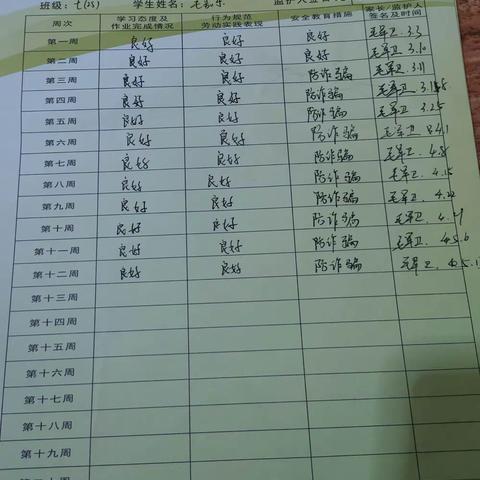 班级：七(25) 学生姓名：
周次 学习态度及作业完成情况 行为规范劳动实践表现 安全教育措施 家长/监护人签名及时间
第一周 良好 良好 良好 毛军卫 3.3
第二周 良好 良好 良好 毛军卫 3.10
第三周 良好 良好 防诈骗 毛军卫 3.11
第四周 良好 良好 防诈骗 毛军卫
第五周 良好 良好 防诈骗 毛军卫 3.25
第六周 良好 良好 防诈骗 毛军卫 4.1
第七周 良好 良好 防诈骗 毛军卫 4.8
第八周 良好 良好 防诈骗 毛军卫 4.15
第九周 良好 良好 防诈骗 毛军卫 4.22
第十周 良好 良好 防诈骗 毛军卫
第十一周 良好 良好 防诈骗 毛军卫 5.6
第十二周 良好 良好 防诈骗 毛军卫
第十三周
第十四周
第十五周
第十六周
第十七周
第十八周
第十九周